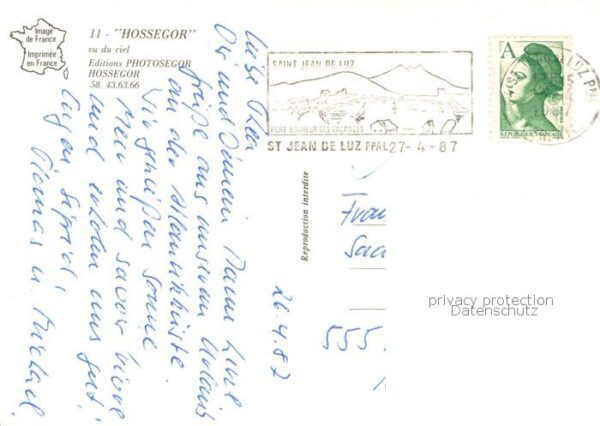 Image
de France
Imprimée
en France
11 - "HOSSEGOR"
vu du ciel
Editions PHOTOSEGOR
HOSSEGOR
58 43.63.66
SAINT JEAN DE LUZ
PORT BONHEUR DES VACANCES
ST JEAN DE LUZ PPAL 27-4-87
A
REPUBLIQUE FRANÇAISE
LUZ PPAL
Reproduction interdite
Dir und Deinem Mann liebe
Grüße aus unserem Urlaub
an der Atlantikküste.
Wir genießen Sonne
Meer und savoir vivre
und erholen uns gut!
Eugen, Sigrid,
Thomas u. Michael
26.4.87
Frau
Saa
555
privacy protection
Datenschutz